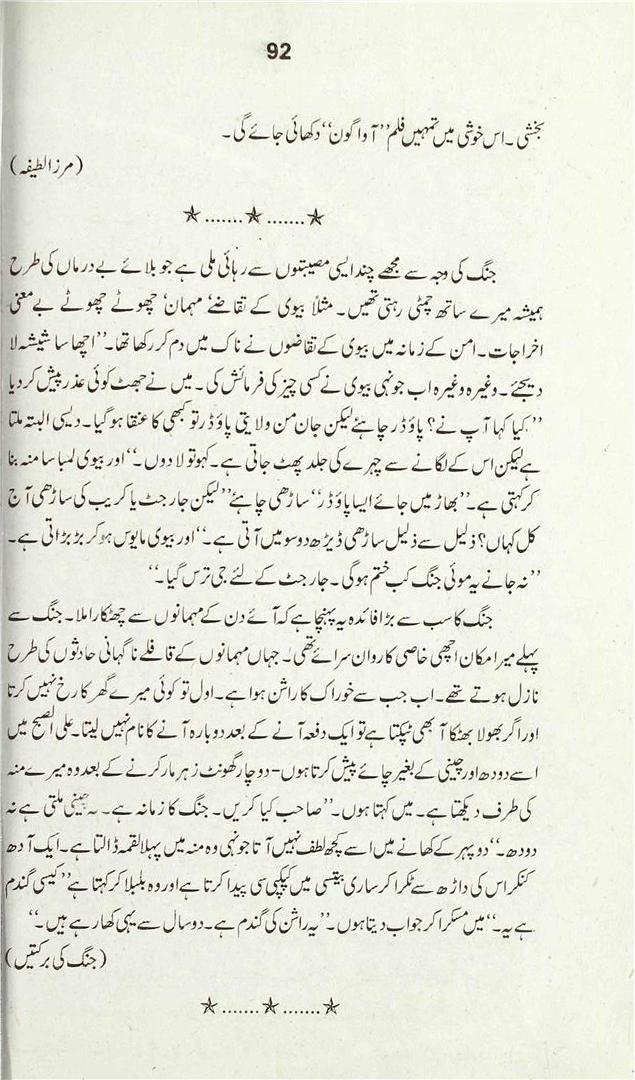 92
بخشی ۔ اس خوشی میں تمہیں فلم ’’آواگون‘‘ دکھائی جائے گی ۔
(مرزا لطیفہ)
جنگ کی وجہ سے مجھے چند ایسی مصیبتوں سے رہائی ملی ہے جو بلائے بے درماں کی طرح
ہمیشہ میرے ساتھ چمٹی رہتی تھیں۔ مثلاً بیوی کے تقاضے‘ مہمان‘ چھوٹے چھوٹے بے معنی
اخراجات۔ امن کے زمانہ میں بیوی کے تقاضوں نے ناک میں دم کر رکھا تھا۔ ’’اچھا سا شیشہ لا
دیجئے۔ وغیرہ وغیرہ اب جونہی بیوی نے کسی چیز کی فرمائش کی۔ میں نے جھٹ کوئی عذر پیش کر دیا
’’کیا کہا آپ نے؟ پاؤڈر چاہئے لیکن جان من ولایتی پاؤڈر تو کبھی کا عنقا ہو گیا۔ دیسی البتہ ملتا
ہے لیکن اس کے لگانے سے چہرے کی جلد پھٹ جاتی ہے۔ کہو تو لا دوں۔‘‘ اور بیوی لمبا سا منہ بنا
کر کہتی ہے۔ ’’بھاڑ میں جائے ایسا پاؤڈر‘‘ ساڑھی چاہئے’’ لیکن جارجٹ یا کریب کی ساڑھی آج
کل کہاں؟ ذلیل سے ذلیل ساڑھی ڈیڑھ دو سو میں آتی ہے۔‘‘ اور بیوی مایوس ہو کر بڑبڑاتی ہے۔
’’نہ جانے یہ موئی جنگ کب ختم ہوگی۔ جارجٹ کے لئے جی ترس گیا۔‘‘
جنگ کا سب سے بڑا فائدہ یہ پہنچا ہے کہ آئے دن کے مہمانوں سے چھٹکارا ملا۔ جنگ سے
پہلے میرا مکان اچھی خاصی کارواں سرائے تھی۔ جہاں مہمانوں کے قافلے ناگہانی حادثوں کی طرح
نازل ہوتے تھے۔ اب جب سے خوراک کا راشن ہوا ہے۔ اول تو کوئی میرے گھر کا رخ نہیں کرتا
اور اگر بھولا بھٹکا آ بھی ٹپکتا ہے تو ایک دفعہ آنے کے بعد دوبارہ آنے کا نام نہیں لیتا۔ علی الصبح میں
اسے دودھ اور چینی کے بغیر چائے پیش کرتا ہوں- دو چار گھونٹ زہر مار کرنے کے بعد وہ میرے منہ
کی طرف دیکھتا ہے۔ میں کہتا ہوں۔ ’’صاحب کیا کریں۔ جنگ کا زمانہ ہے۔ نہ چینی ملتی ہے نہ
دودھ۔‘‘ دوپہر کے کھانے میں اسے کچھ لطف نہیں آتا جونہی وہ منہ میں پہلا لقمہ ڈالتا ہے۔ ایک آدھ
کنکر اس کی داڑھ سے ٹکرا کر ساری بتیسی میں کپکپی سی پیدا کرتا ہے اور وہ بلبلا کر کہتا ہے ’’کیسی گندم
ہے یہ۔‘‘ میں مسکرا کر جواب دیتا ہوں۔ ’’یہ راشن کی گندم ہے۔ دو سال سے یہی کھا رہے ہیں۔‘‘
(جنگ کی برکتیں)